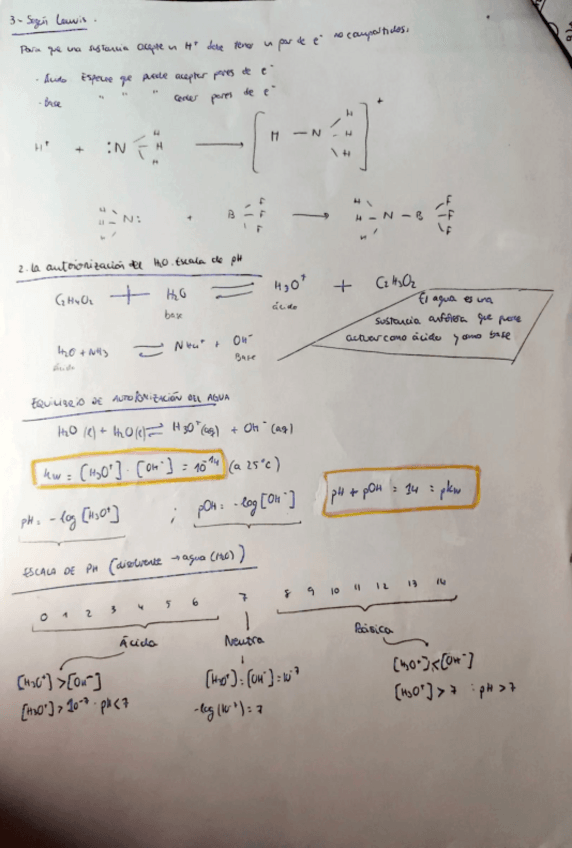 3- Según Lewis.
Para que una sustancia acepte un H⁺ debe tener un par de e⁻ no compartidos.
· Ácido Especie que puede aceptar pares de e⁻
· Base " " " ceder pares de e⁻
H⁺ + :N H H H → [H — N H H H]⁺
H H H N: + B F F F → H H H N — B F F F
2. La autoionización del H₂O. Escala de pH
C₂H₄O₂ + H₂O ⇌ H₃O⁺ + C₂H₃O₂
base ácido
El agua es una
sustancia anfótera que puede
actuar como ácido y como base
H₂O + NH₃ ⇌ NH₄⁺ + OH⁻
ácido Base
EQUILIBRIO DE AUTOIONIZACIÓN DEL AGUA
H₂O (l) + H₂O (l) ⇌ H₃O⁺ (aq) + OH⁻ (aq)
Kw = [H₃O⁺] · [OH⁻] = 10⁻¹⁴ (a 25°C)
pH + pOH = 14 = pKw
pH = -log [H₃O⁺] ; pOH = -log [OH⁻]
ESCALA DE PH (disolvente → agua (H₂O))
0 1 2 3 4 5 6 7 8 9 10 11 12 13 14
Ácida Neutra Básica
[H₃O⁺] > [OH⁻] [H₃O⁺] = [OH⁻] = 10⁻⁷ [H₃O⁺] < [OH⁻]
[H₃O⁺] > 10⁻⁷ · pH < 7 -log (10⁻⁷) = 7 [H₃O⁺] > 7 : pH > 7